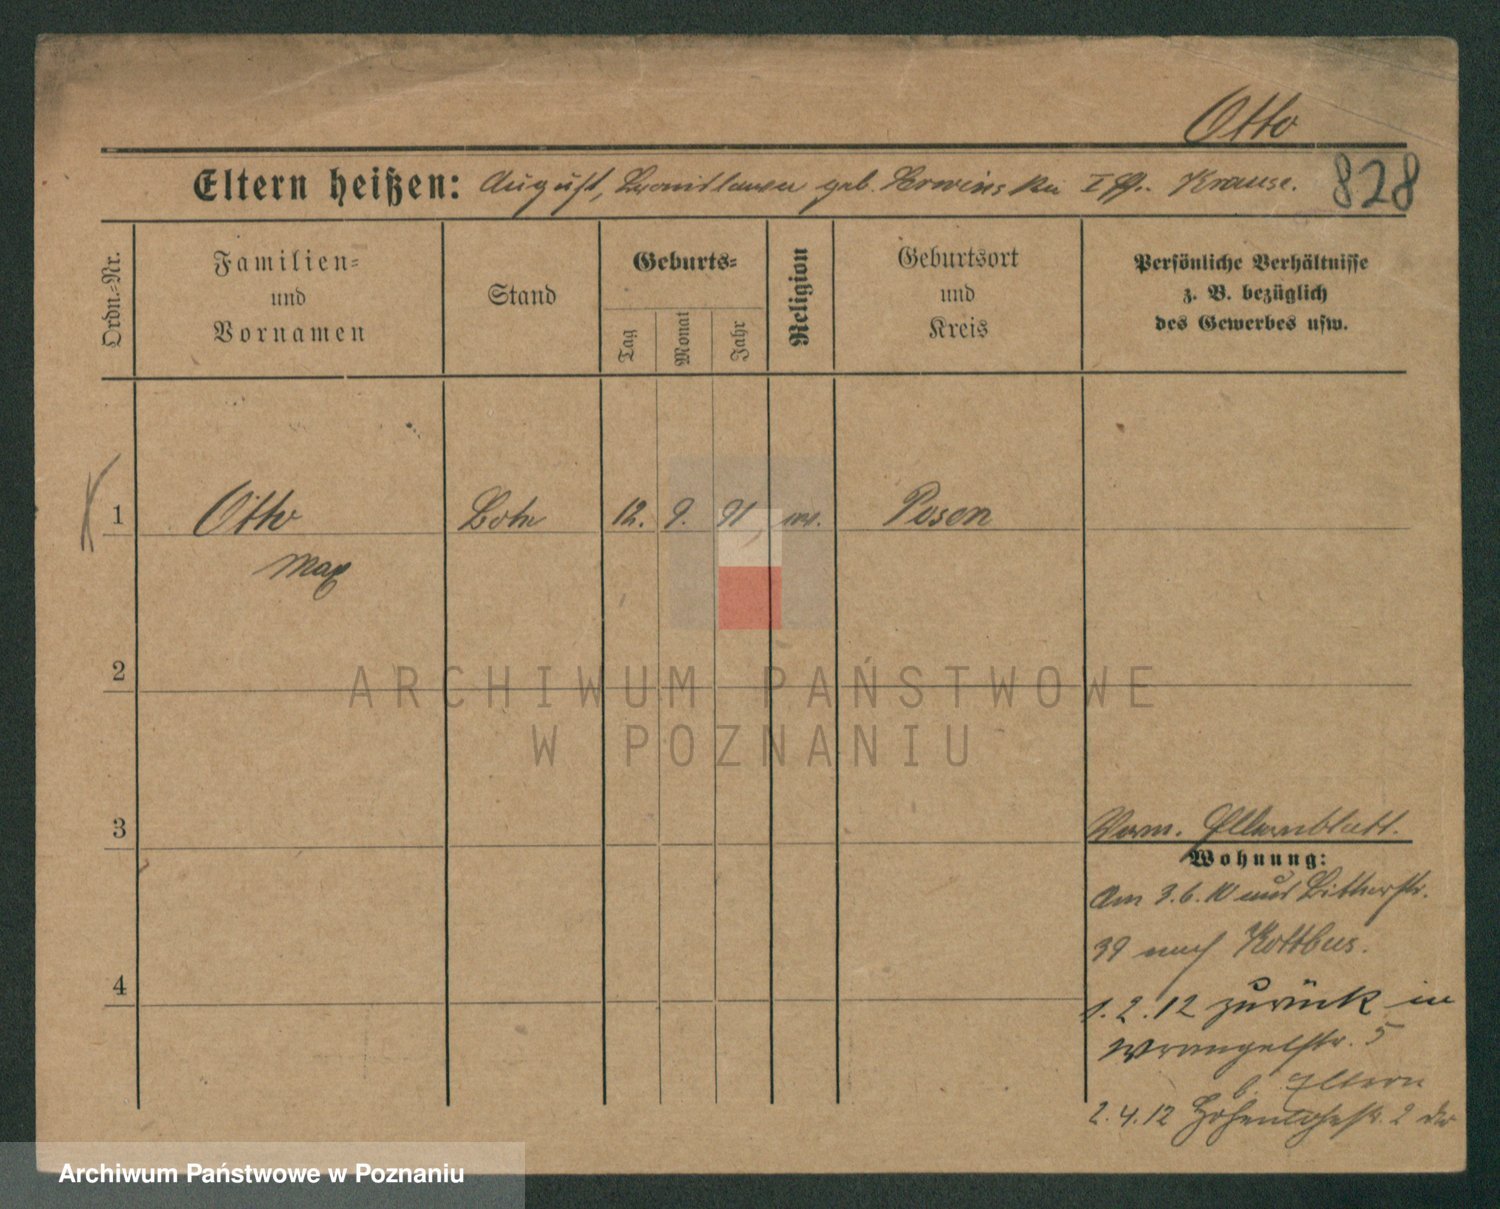 Otto
Eltern heißen: August, geb. I Eh. Krause.
828
Ordn.-Nr.
Familien-
und
Vornamen
Stand
Geburts-
Tag
Monat
Jahr
Religion
Geburtsort
und
Kreis
Persönliche Verhältnisse
z. B. bezüglich
des Gewerbes usw.
1 Otto 12. 9. 91 Posen
Max
2
ARCHIWUM PAŃSTWOWE
W POZNANIU
3
Verm. Elternblatt.
Wohnung:
Am 3.6.10 aus
39 nach Kottbus.
4
1.2.12 zurück in
Wrangelstr. 5
b. Eltern
2.4.12 Hohenlohestr. 2
Archiwum Państwowe w Poznaniu